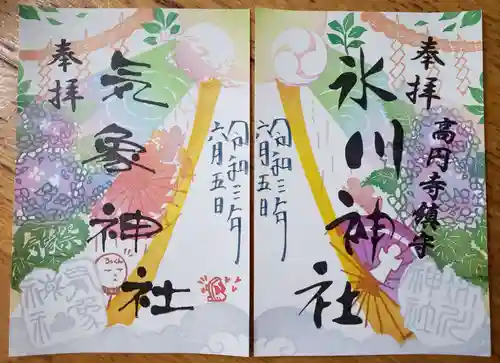 奉拝
気象神社
令和三年
六月五日
気象祭
奉拝
高円寺鎮守
氷川神社
令和三年
六月五日